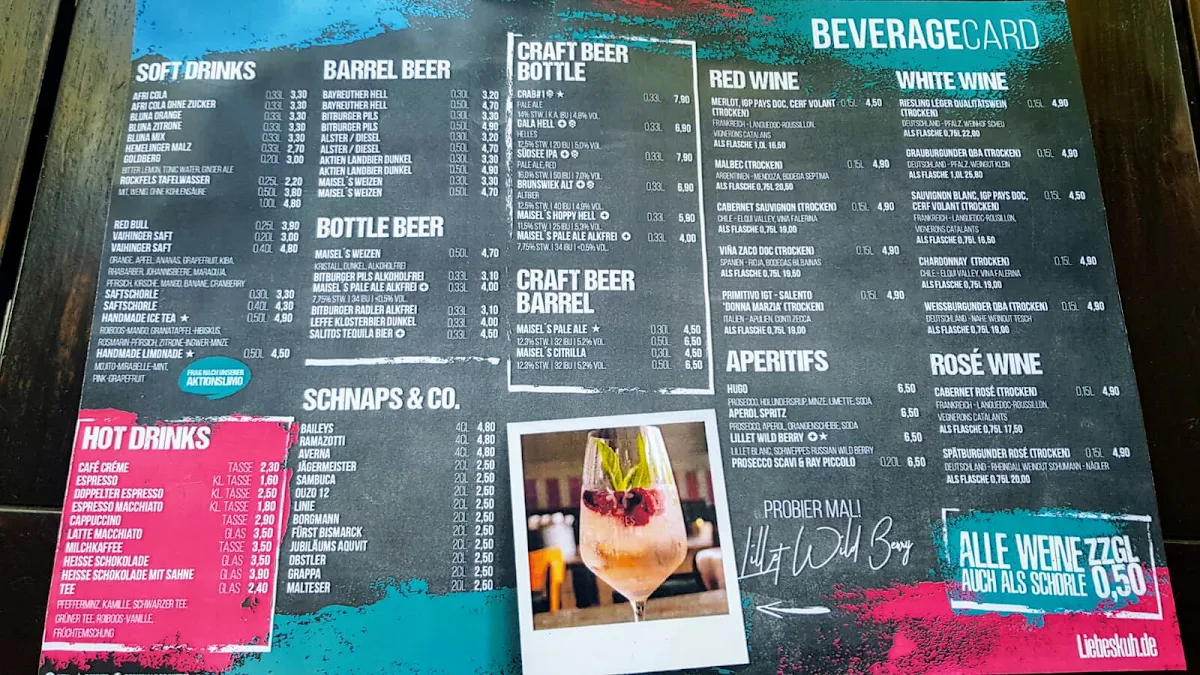 BEVERAGECARD
SOFT DRINKS
AFRI COLA 0,33L 3,30
AFRI COLA OHNE ZUCKER 0,33L 3,30
BLUNA ORANGE 0,33L 3,30
BLUNA ZITRONE 0,33L 3,30
BLUNA MIX 0,33L 3,30
HEMELINGER MALZ 0,33L 2,70
GOLDBERG 0,20L 3,00
BITTER LEMON, TONIC WATER, GINGER ALE
ROCKFELS TAFELWASSER 0,25L 2,20
MIT, WENIG, OHNE KOHLENSÄURE 0,50L 3,80
1,00L 4,80
RED BULL 0,25L 3,90
VAIHINGER SAFT 0,20L 3,00
VAIHINGER SAFT 0,40L 4,80
ORANGE, APFEL, ANANAS, GRAPEFRUIT, KIBA,
RHABARBER, JOHANNISBEERE, MARACUJA,
PFIRSICH, KIRSCHE, MANGO, BANANE, CRANBERRY
SAFTSCHORLE 0,30L 3,30
SAFTSCHORLE 0,40L 4,30
HANDMADE ICE TEA ★ 0,50L 4,90
ROIBOOS-MANGO, GRANATAPFEL-HIBISKUS,
ROSMARIN-PFIRSICH, ZITRONE-INGWER-MINZE
HANDMADE LIMONADE ★ 0,50L 4,50
MOJITO-MIRABELLE-MINT,
PINK-GRAPEFRUIT
FRAG NACH UNSERER
AKTIONSLIMO
HOT DRINKS
CAFÉ CRÉME TASSE 2,30
ESPRESSO KL. TASSE 1,60
DOPPELTER ESPRESSO TASSE 2,50
ESPRESSO MACCHIATO KL. TASSE 1,80
CAPPUCCINO TASSE 2,90
LATTE MACCHIATO GLAS 3,50
MILCHKAFFEE TASSE 3,50
HEISSE SCHOKOLADE GLAS 3,50
HEISSE SCHOKOLADE MIT SAHNE GLAS 3,90
TEE GLAS 2,40
PFEFFERMINZ, KAMILLE, SCHWARZER TEE
GRÜNER TEE, ROIBOOS-VANILLE,
FRÜCHTEMISCHUNG
BARREL BEER
BAYREUTHER HELL 0,30L 3,20
BAYREUTHER HELL 0,50L 4,70
BITBURGER PILS 0,30L 3,30
BITBURGER PILS 0,50L 4,90
ALSTER / DIESEL 0,30L 3,30
ALSTER / DIESEL 0,50L 4,90
AKTIEN LANDBIER DUNKEL 0,30L 3,30
AKTIEN LANDBIER DUNKEL 0,50L 4,90
MAISEL´S WEIZEN 0,30L 3,30
MAISEL´S WEIZEN 0,50L 4,70
BOTTLE BEER
MAISEL´S WEIZEN 0,50L 4,70
KRISTALL, DUNKEL, ALKOHOLFREI
BITBURGER PILS ALKOHOLFREI 0,33L 3,10
MAISEL´S PALE ALE ALKFREI 0,33L 4,00
7,75% STW | 34 IBU | <0,5% VOL.
BITBURGER RADLER ALKFREI 0,33L 3,10
LEFFE KLOSTERBIER DUNKEL 0,33L 4,00
SALITOS TEQUILA BIER 0,33L 4,50
SCHNAPS & CO.
BAILEYS 4CL 4,80
RAMAZOTTI 4CL 4,80
AVERNA 4CL 4,80
JÄGERMEISTER 2CL 2,50
SAMBUCA 2CL 2,50
OUZO 12 2CL 2,50
LINIE 2CL 2,50
BORGMANN 2CL 2,50
FÜRST BISMARCK 2CL 2,50
JUBILÄUMS AQUVIT 2CL 2,50
OBSTLER 2CL 2,50
GRAPPA 2CL 2,50
MALTESER 2CL 2,50
CRAFT BEER
BOTTLE
CRAB#1 ★ 0,33L 7,90
PALE ALE
14% STW. | K.A. IBU | 4,6% VOL.
GALA HELL 0,33L 6,90
HELLES
12,5% STW. | 20 IBU | 5,0% VOL.
SÜDSEE IPA 0,33L 7,90
PALE ALE, RED
16,0% STW. | 50 IBU | 7,0% VOL.
BRUNSWIEK ALT 0,33L 6,90
ALTBIER
12,5% STW. | 40 IBU | 4,9% VOL.
MAISEL´S HOPPY HELL 0,33L 5,90
11,5% STW. | 25 IBU | 5,3% VOL.
MAISEL´S PALE ALE ALKFREI 0,33L 4,00
7,75% STW. | 34 IBU | <0,5% VOL.
CRAFT BEER
BARREL
MAISEL´S PALE ALE ★ 0,30L 4,50
12,3% STW. | 32 IBU | 5,2% VOL. 0,50L 6,50
MAISEL´S CITRILLA 0,30L 4,50
12,3% STW. | 32 IBU | 5,2% VOL. 0,50L 6,50
RED WINE
MERLOT, IGP PAYS DOC, CERF VOLANT 0,15L 4,50
(TROCKEN)
FRANKREICH - LANGUEDOC-ROUSSILLON,
VIGNERONS CATALANS
ALS FLASCHE 1,0L 16,50
MALBEC (TROCKEN) 0,15L 4,90
ARGENTINIEN - MENDOZA, BODEGA SEPTIMA
ALS FLASCHE 0,75L 20,50
CABERNET SAUVIGNON (TROCKEN) 0,15L 4,90
CHILE - ELQUI VALLEY, VINA FALERINA
ALS FLASCHE 0,75L 19,00
VIÑA ZACO DOC (TROCKEN) 0,15L 4,90
SPANIEN - RIOJA, BODEGAS BILBAINAS
ALS FLASCHE 0,75L 19,50
PRIMITIVO IGT - SALENTO 0,15L 4,90
'DONNA MARZIA' (TROCKEN)
ITALIEN - APULIEN, CONTI ZECCA
ALS FLASCHE 0,75L 19,00
APERITIFS
HUGO 6,50
PROSECCO, HOLUNDERSIRUP, MINZE, LIMETTE, SODA
APEROL SPRITZ 6,50
PROSECCO, APEROL, ORANGENSCHEIBE, SODA
LILLET WILD BERRY ★ 6,50
LILLET BLANC, SCHWEPPES RUSSIAN WILD BERRY
PROSECCO SCAVI & RAY PICCOLO 0,20L 6,50
PROBIER MAL!
Lillet Wild Berry
WHITE WINE
RIESLING LÉGER QUALITÄTSWEIN 0,15L 4,90
(TROCKEN)
DEUTSCHLAND - PFALZ, WEINHOF SCHEU
ALS FLASCHE 0,75L 22,00
GRAUBURGUNDER QBA (TROCKEN) 0,15L 4,90
DEUTSCHLAND - PFALZ, WEINGUT KLEIN
ALS FLASCHE 1,0L 25,80
SAUVIGNON BLANC, IGP PAYS DOC, 0,15L 4,50
CERF VOLANT (TROCKEN)
FRANKREICH - LANGUEDOC-ROUSSILLON,
VIGNERONS CATALANS
ALS FLASCHE 0,75L 16,50
CHARDONNAY (TROCKEN) 0,15L 4,90
CHILE - ELQUI VALLEY, VINA FALERINA
ALS FLASCHE 0,75L 19,00
WEISSBURGUNDER QBA (TROCKEN) 0,15L 4,90
DEUTSCHLAND - NAHE WEINGUT TESCH
ALS FLASCHE 0,75L 19,00
ROSÉ WINE
CABERNET ROSÉ (TROCKEN) 0,15L 4,90
FRANKREICH - LANGUEDOC-ROUSSILLON,
VIGNERONS CATALANS
ALS FLASCHE 0,75L 17,50
SPÄTBURGUNDER ROSÉ (TROCKEN) 0,15L 4,90
DEUTSCHLAND - RHEINGAU, WEINGUT SCHUMANN - NÄGLER
ALS FLASCHE 0,75L 20,00
ALLE WEINE ZZGL
AUCH ALS SCHORLE 0,50
Liebeskuh.de